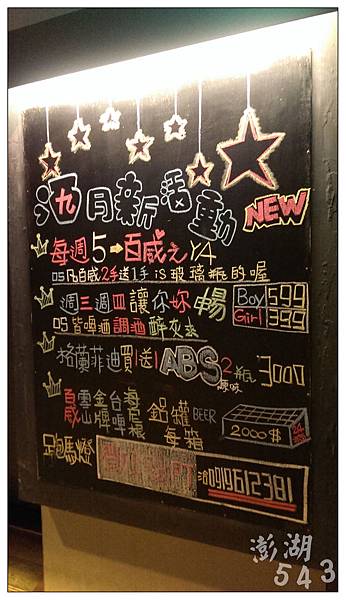 酒九月新活動 NEW
每週5→百威之YA
PS凡百威2手送1手 is 玻璃瓶的喔
週三週四讓你妳暢 Boy 599
Girl 399
PS 皆啤酒調酒
格蘭菲迪買送1 ABS 2瓶 3000
原味
百威 雪山 金牌 台啤 海尼根 鋁罐 BEER 每箱 2000$
24
跑馬燈
洽0919612381
澎湖
543